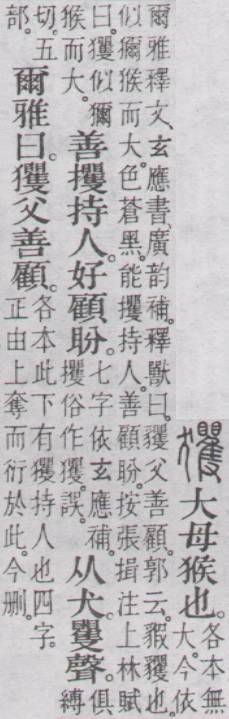 大母猴也。各本無
大。今依
爾雅釋文、玄應書、廣韵補。釋獸曰。貜父善顧。郭云。貑貜也。
似獼猴而大。色蒼黑。能攫持人。善顧盼。按張揖注上林賦
曰。玃似獼
猴而大。
善攫持人。好顧盼。
七字依玄應補。
攫俗作玃。誤。
从犬矍聲。
俱
縛
切。五
部。
爾雅曰。玃父善顧。
各本此下有玃持人也四字。
正由上奪而衍於此。今刪。